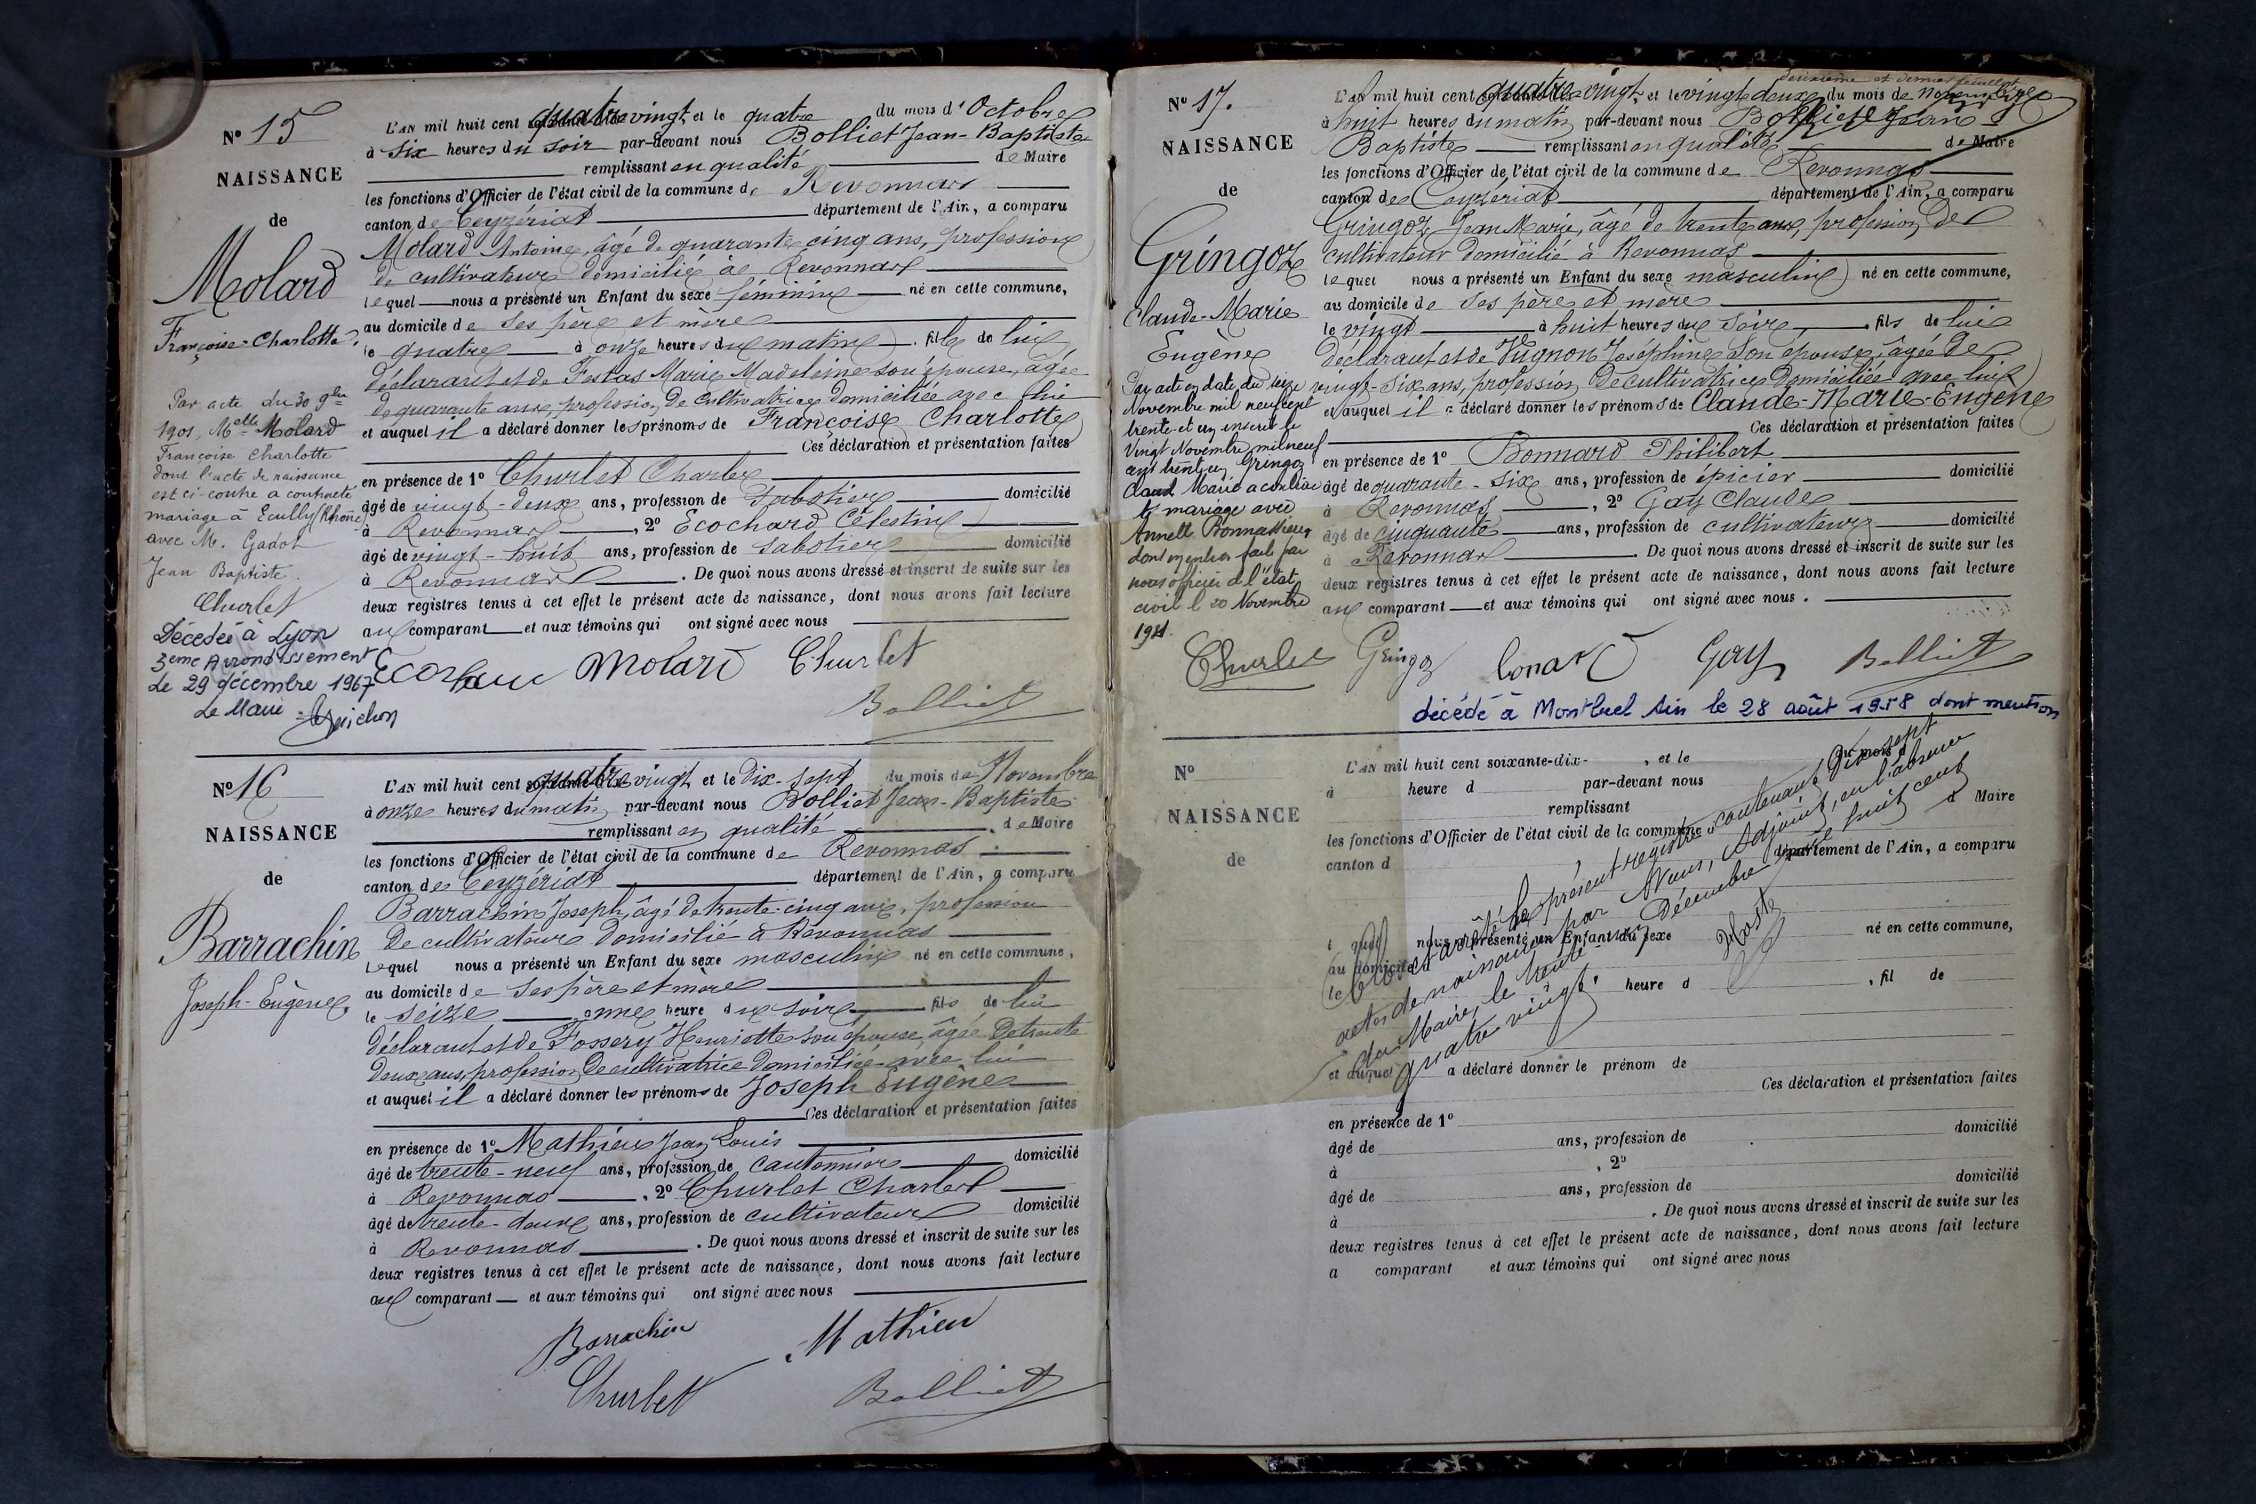 N° 15
NAISSANCE
de
Molard
Françoise-Charlotte.
Par acte du 30 9bre
1901, Melle Molard
Françoise Charlotte
dont l'acte de naissance
est ci-contre a contracté
mariage à Ecully (Rhône)
avec M. Gadot
Jean Baptiste.
Churlet
Décédée à Lyon
3eme Arrondissement
Le 29 décembre 1967
Le Maire
L'AN mil huit cent soixante-dix quatre vingt et le quatre du mois d'Octobre
à six heures du soir par-devant nous Bolliet Jean-Baptiste
remplissant en qualité de Maire
les fonctions d'Officier de l'état civil de la commune de Revonnas
canton de Ceyzériat département de l'Ain, a comparu
Molard Antoine, âgé de quarante cinq ans, profession
de cultivateur domicilié à Revonnas
lequel nous a présenté un Enfant du sexe féminin né en cette commune,
au domicile de ses père et mère
le quatre à onze heures du matin. fille de lui
déclarant et de Festas Marie Madeleine son épouse, âgée
de quarante ans, profession de cultivatrice domiciliée avec lui
et auquel il a déclaré donner les prénoms de Françoise Charlotte
Ces déclaration et présentation faites
en présence de 1° Churlet Charles
âgé de vingt-deux ans, profession de sabotier domicilié
à Revonnas, 2° Ecochard Célestin
âgé de vingt-huit ans, profession de sabotier domicilié
à Revonnas. De quoi nous avons dressé et inscrit de suite sur les
deux registres tenus à cet effet le présent acte de naissance, dont nous avons fait lecture
au comparant et aux témoins qui ont signé avec nous
Molard Churlet
Bolliet
N° 16
NAISSANCE
de
Barrachin
Joseph-Eugène.
L'AN mil huit cent soixante-dix quatre vingt et le Dix-sept du mois de Novembre
à onze heures du matin par-devant nous Bolliet Jean-Baptiste
remplissant en qualité de Maire
les fonctions d'Officier de l'état civil de la commune de Revonnas
canton de Ceyzériat département de l'Ain, a comparu
Barrachin Joseph, âgé de trente-cinq ans, profession
de cultivateur domicilié à Revonnas
lequel nous a présenté un Enfant du sexe masculin né en cette commune,
au domicile de ses père et mère
le seize à une heure du soir fils de lui
déclarant et de Fossery Henriette son épouse, âgée de trente
deux ans, profession de cultivatrice domiciliée avec lui
et auquel il a déclaré donner les prénoms de Joseph Eugène
Ces déclaration et présentation faites
en présence de 1° Mathieu Jean Louis
âgé de trente-neuf ans, profession de cantonnier domicilié
à Revonnas, 2° Churlet Charles
âgé de trente-deux ans, profession de cultivateur domicilié
à Revonnas. De quoi nous avons dressé et inscrit de suite sur les
deux registres tenus à cet effet le présent acte de naissance, dont nous avons fait lecture
au comparant et aux témoins qui ont signé avec nous
Barrachin Mathieu
Churlet Bolliet
deuxième et dernier feuillet
N° 17.
NAISSANCE
de
Gringoz
Claude-Marie
Eugène
Par acte en date du seize
Novembre mil neuf cent
trente et un inscrit le
vingt Novembre mil neuf
cent trente un Gringoz
Claude Marie a contracté
mariage avec
Annette Bonnassieux
dont mention faite par
nous officier de l'état
civil le 20 Novembre
1931.
L'AN mil huit cent soixante-dix quatre vingt et le vingt deux du mois de Novembre
à huit heures du matin par-devant nous Bolliet Jean
Baptiste remplissant en qualité de Maire
les fonctions d'Officier de l'état civil de la commune de Revonnas
canton de Ceyzériat département de l'Ain, a comparu
Gringoz Jean Marie, âgé de trente ans, profession de
cultivateur domicilié à Revonnas
lequel nous a présenté un Enfant du sexe masculin né en cette commune,
au domicile de ses père et mère
le vingt à huit heures du soir, fils de lui
déclarant et de Vugnon Joséphine son épouse, âgée de
vingt-six ans, profession de cultivatrice domiciliée avec lui
et auquel il a déclaré donner les prénoms de Claude-Marie-Eugène
Ces déclaration et présentation faites
en présence de 1° Bonnard Philibert
âgé de quarante-six ans, profession de épicier domicilié
à Revonnas, 2° Gay Claude
âgé de cinquante ans, profession de cultivateur domicilié
à Revonnas. De quoi nous avons dressé et inscrit de suite sur les
deux registres tenus à cet effet le présent acte de naissance, dont nous avons fait lecture
au comparant et aux témoins qui ont signé avec nous.
Churlet Gringoz bonard Gay Bolliet
décédé à Montluel Ain le 28 août 1958 dont mention
N°
NAISSANCE
de
L'AN mil huit cent soixante-dix- , et le du mois d
à heure d par-devant nous
remplissant d Maire
les fonctions d'Officier de l'état civil de la commune d
canton d département de l'Ain, a comparu
l quel nous a présenté un Enfant du sexe né en cette commune,
au domicile d
le heure d , fil de
et auquel a déclaré donner le prénom de
Ces déclaration et présentation faites
en présence de 1°
âgé de ans, profession de domicilié
à , 2°
âgé de ans, profession de domicilié
à . De quoi nous avons dressé et inscrit de suite sur les
deux registres tenus à cet effet le présent acte de naissance, dont nous avons fait lecture
a comparant et aux témoins qui ont signé avec nous
Clos et arrêté le présent registre contenant Dix-sept
actes de naissance par Nous, Adjoint, en l'absence
du Maire, le trente-un Décembre mil huit cent
quatre vingt.